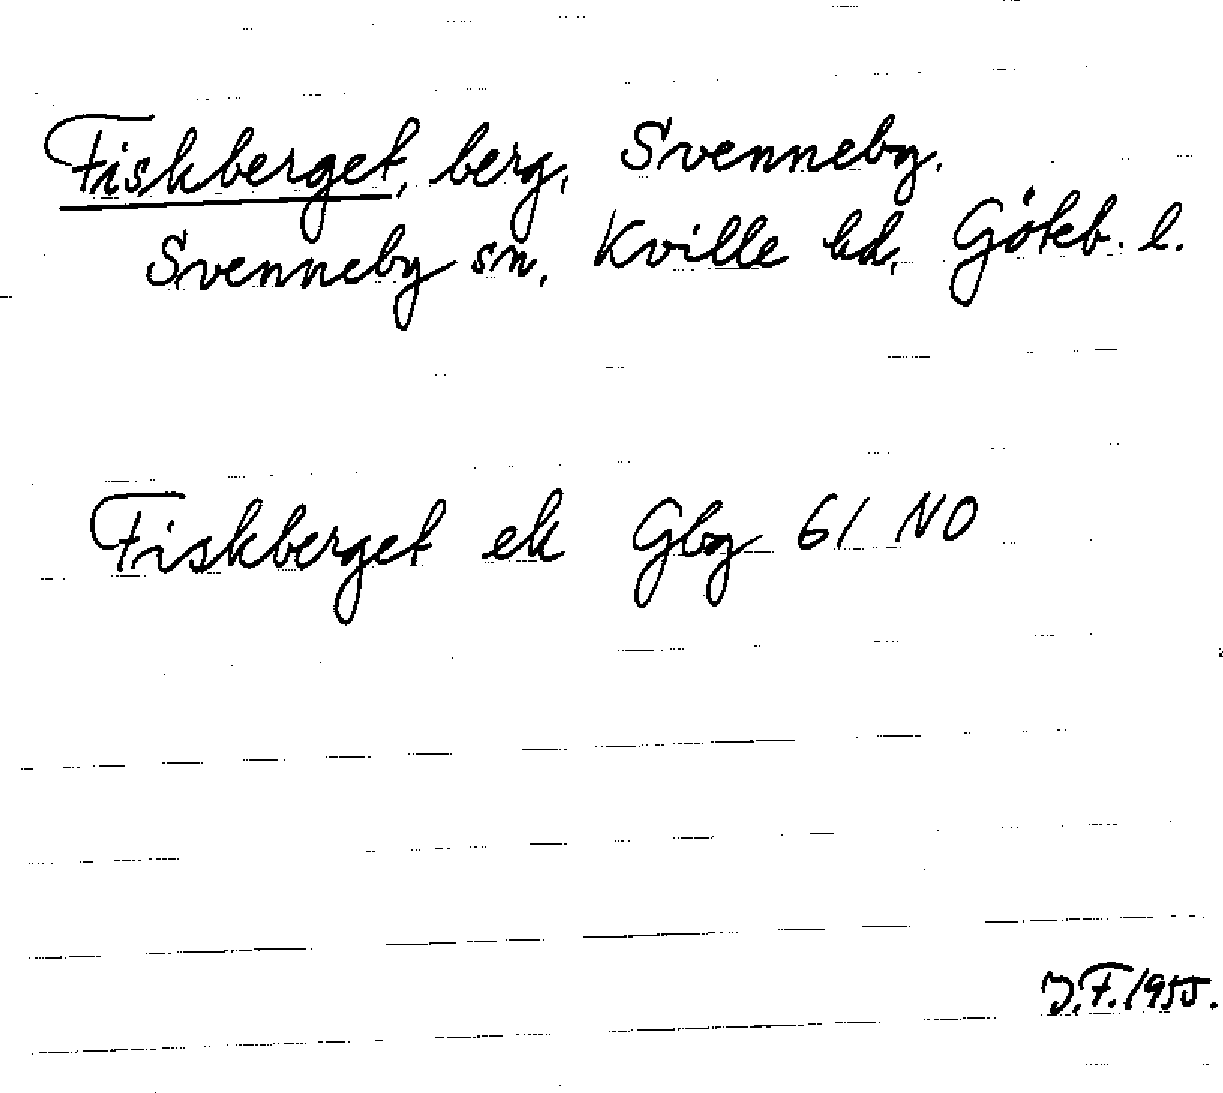 Fiskberget, berg, Svenneby,
Svenneby sn, Kville hd, Göteb. l.
Fiskberget ek Gbg 61 NO
J.F. 1955.